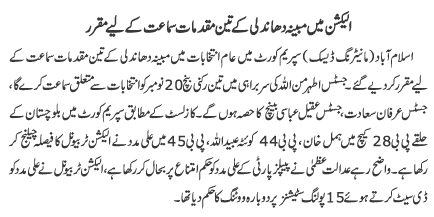 الیکشن میں مبینہ دھاندلی کے تین مقدمات سماعت کے لیے مقرر
اسلام آباد (مانیٹرنگ ڈیسک) سپریم کورٹ میں عام انتخابات میں مبینہ دھاندلی کے تین مقدمات سماعت کے لیے
مقرر کر دیے گئے۔ جسٹس اطہر من اللہ کی سربراہی میں تین رکنی بنچ 20 نومبر کو انتخابات سے متعلق سماعت کرے گا،
جسٹس عرفان سعادت، جسٹس عقیل عباسی بینچ کا حصہ ہوں گے۔ کاز لسٹ کے مطابق سپریم کورٹ میں بلوچستان کے
حلقے پی بی 28 کیچ میں ہمل خان، پی بی 44 کوئٹہ عبیداللہ، پی بی 45 میں علی مدد نے الیکشن ٹربیونل کا فیصلہ چیلنج کر
رکھا ہے۔ واضح رہے عدالت عظمیٰ نے پیپلز پارٹی کے علی مدد کو حکم امتناع پر بحال کر رکھا ہے، الیکشن ٹربیونل نے علی مدد کو
ڈی سیٹ کرتے ہوئے 15 پولنگ سٹیشنز پر دوبارہ ووٹنگ کا حکم دیا تھا۔